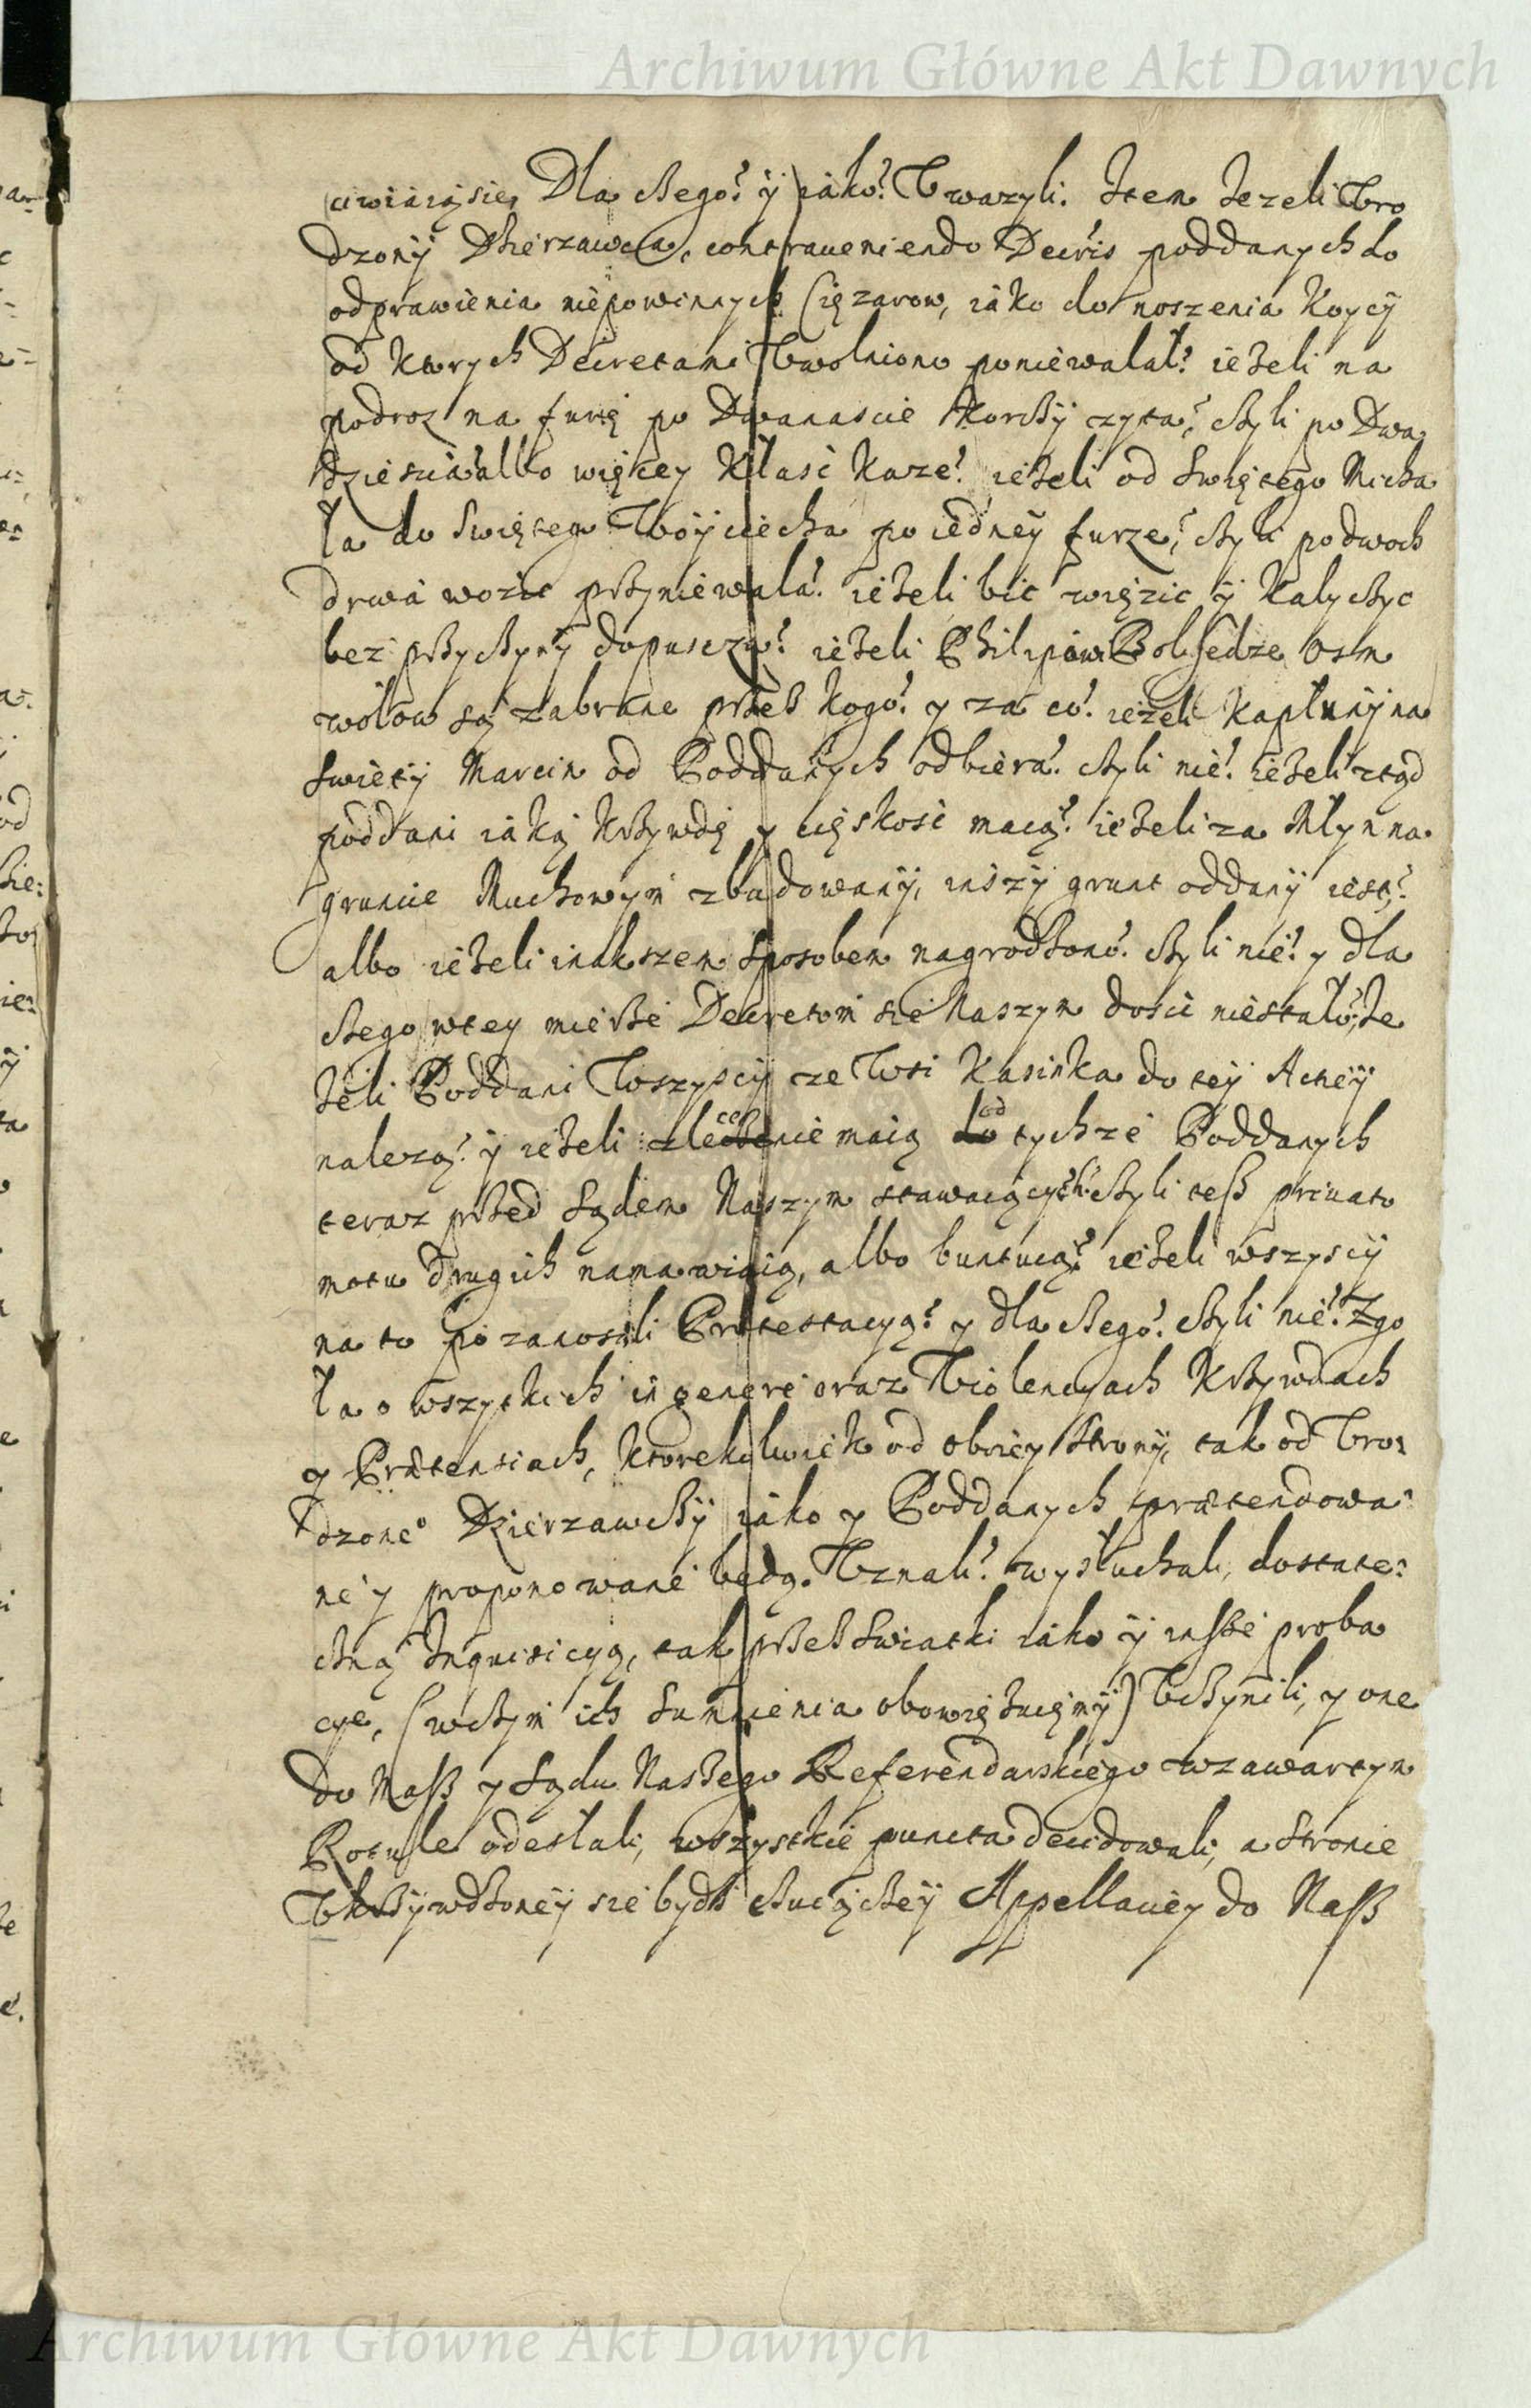 Archiwum Główne Akt Dawnych
uwiaią sie, Dla czego? ÿ iako? Uwazyli. Item Iezeli Uro
dzonÿ Dzierzawca, contraueniendo Decris poddanych do
odprawienia niepowinnych Cięzarow, iako do noszenia Koycÿ
od ktorych Decretami Uwolniono poniewalał? ieżeli na
podroz na furę po Dwanascie korcÿ zyta, czyli po Dwa
dziescia albo więcey Kłasć kaze? ieżeli od Swiętego Micha
ła do Swiętego Woÿciecha po iedneÿ furze, czyli po dwoch
drwa wozic przyniewala? ieżeli bic więzic ÿ kalyczyc
bez przyczynÿ dopuscza? ieżeli Philipowi Osm
wołow są zabrane przez kogo? y za co? ieżeli Kapłunÿ na
Swiętÿ Marcin od Poddanych odbiera? czyli nie? ieżeli ztąd
poddani iaką krzywdę y cięskosć maią? ieżeli za Młyn na
gruncie Muchowym zbudowanÿ, inszÿ grunt oddanÿ iest,?
albo ieżeli inakszem sposobem nagrodzono? czyli nie? y dla
czego w tey mierze Decretom sie Naszym dosić niestało, Ie
żeli Poddani Wszyscÿ ze Wsi Kasinka do teÿ Akcÿi
należą? ÿ ieżeli zlecenie maią od tychże Poddanych
teraz przed Sądem Naszym stawaiących? Czyli tesz priuato
motu drugich namawiaią, albo buntuią? ieżeli wszyscÿ
na to po zanosili Protestacyą? y dla czego? czyli nie? Zgo
ła o wszytkich in genere oraz Violencyach Krzywdach
y Prætensiach, ktorekolwiek od obiey stronÿ, tak od Uro
dzone° Dzierzawcÿ iako y Poddanych prætendowa
ne y proponowane będą. Uznali? wysłuchali, dostate:
czną Inquisicyą, tak przez Swiatki iako ÿ insze proba
cye, (w czym ich Sumnienia obowięzuięmÿ) Uczynili, y one
do Nasz y Sądu Naszego Referendarskiego w zawartym
Rotule odesłali, wszystkie puncta decidowali, a stronie
Ukrzywdzoneÿ sie bydz czuiączeÿ Appellaciey do Nasz
Archiwum Główne Akt Dawnych